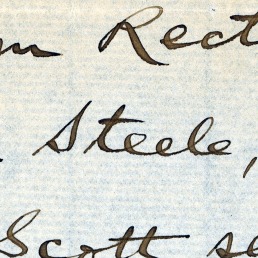 Rect
Steele,
Scott se